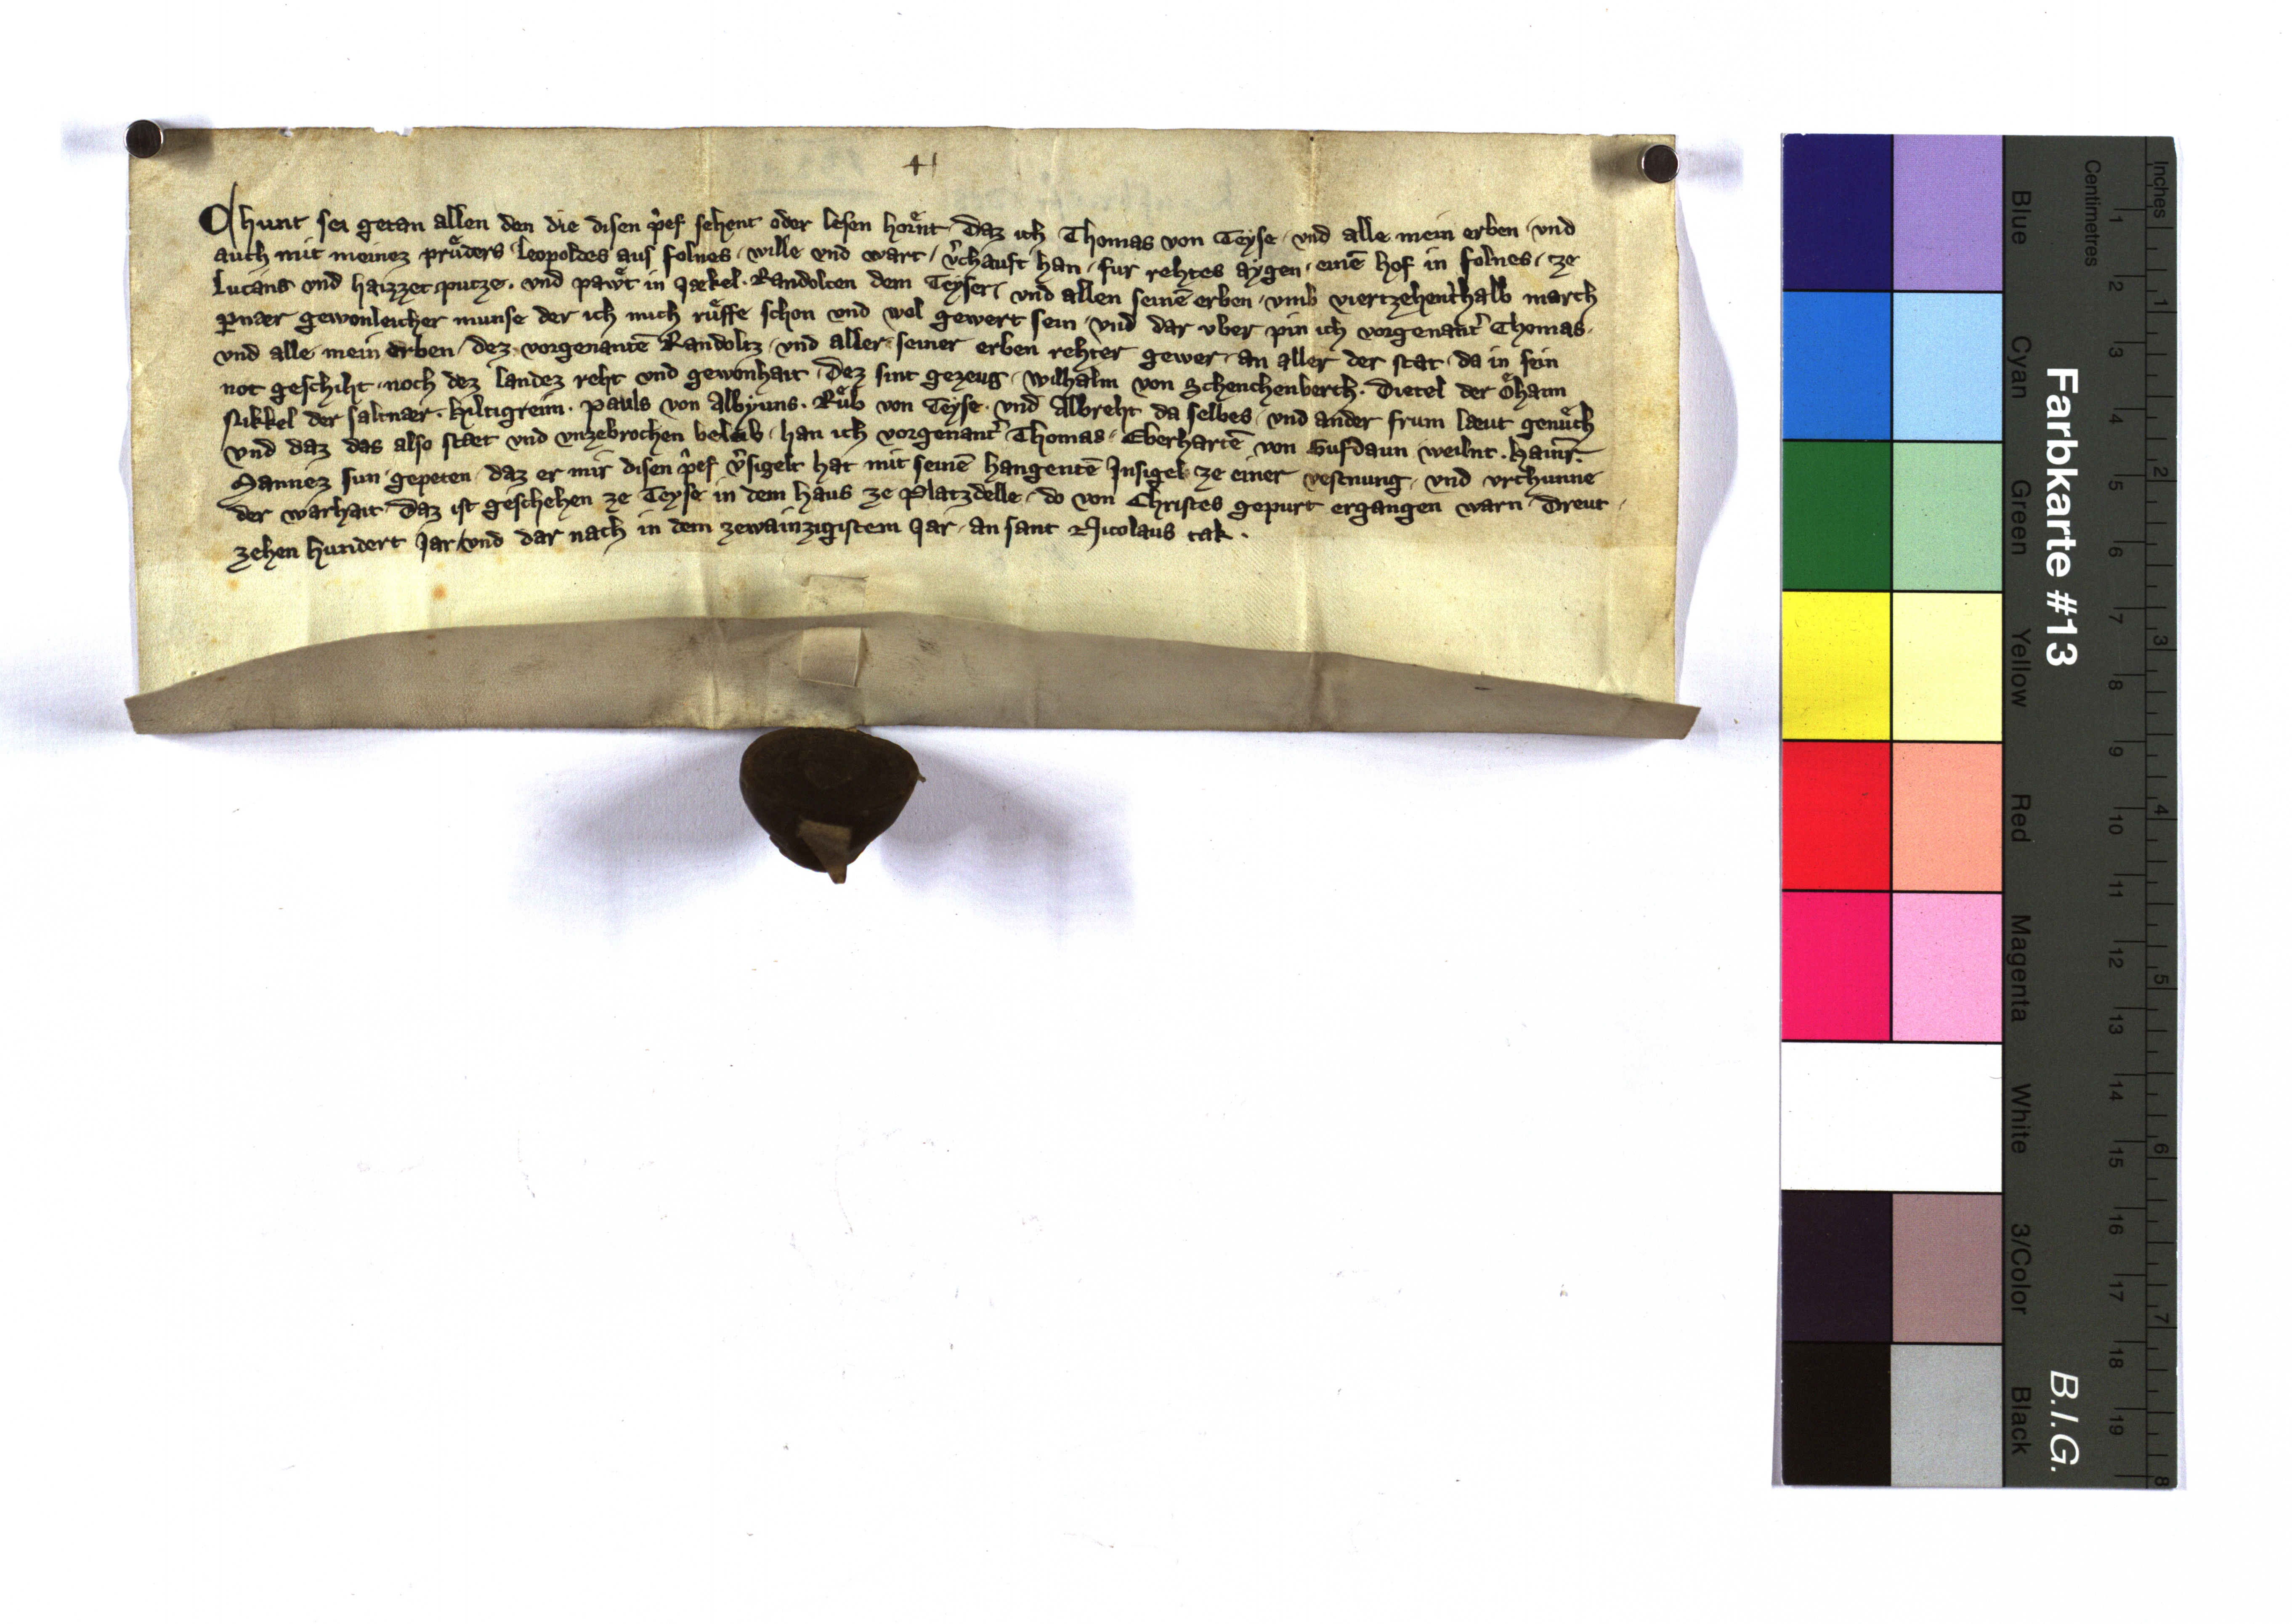 41
Chunt sei getan allen den die disen p̂ef sehent oder lesen hoͤrnt · Daz ich Thomas von Teyse · vnd alle mein erben · vnd
auch mit meinez pruͤders Leopoldes aus folnes · wille vnd wart · v̂chauft han · fur rehtes aygen · einē hof in folnes · ze
Lucans vnd haizzet putze · vnd pawͤt in Jækel · Randolten dem Teyser · vnd allen seinē erben · vmb viertzehenthalb march
perner gewonleicher munse der ich mich ruͤffe schon vnd wol gewert sein · vnd dar vber pin ich vorgenant̂ Thomas ·
vnd alle mein erben · dez vorgenantē Randoltz · vnd aller seiner erben rehter gewer · an aller der stat · da in sein
not geschiht · noch dez landez reht vnd gewonhait · Dez sint gezeug · Wilhalm von Schenchenberch · Dietel der oͤhaim
Nikkel der saltnær · Hiltigreim · Pauls von Albyuns · Ruͤb von Teyse · vnd Albreht da selbes · vnd ander frum læut genuͤch
vnd daz das also stæt vnd vnzebrochen beleib · han ich vorgenant̂ Thomas · Eberhartē von Gufdaun weilnt · Hainr̄ ·
Mannez sun · gepeten · daz er mir disen p̂ef v̂sigelt hat mit seinē hangentē Insigel · ze einer vestnung · vnd vrchunne
der warhait · Daz ist geschehen ze Teyse in dem haus ze Platzdelle · do von Christes gepurt ergangen warn · Dreut ·
zehen hundert Jar / vnd dar nach in dem zewainzigistem Jar · an sant Nicolaus tak ·
Farbkarte #13
B.I.G.
Blue
Cyan
Green
Yellow
Red
Magenta
White
3/Color
Black
Centimetres
1 2 3 4 5 6 7 8 9 10 11 12 13 14 15 16 17 18 19
Inches
1 2 3 4 5 6 7 8